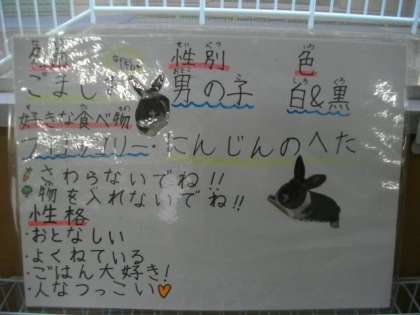 名前 性別 色
ごましお 男の子 白&黒
好きな食べ物
ブロッコリー・にんじんのへた
さわらないでね!!
物を入れないでね!!
性格
・おとなしい
・よくねている
・ごはん大好き!
・人なつっこい♡